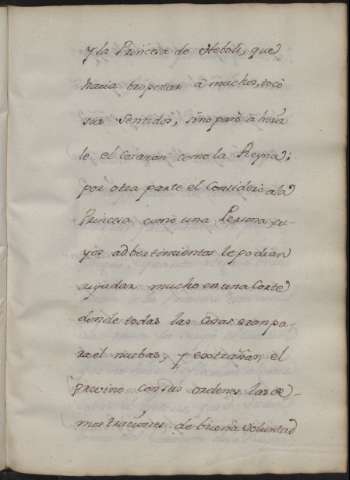 y la Princesa de Heboli, que
hauia tropezar à muchos, tocò
sus Sentidos, sino parò a hirir
le el Corazon como la Reyna;
por otra parte el Considerò ala
Princesa como una Persona cu-
yos adbertimientos le podian
ayudar mucho en una Corte
donde todas las Cosas eran pa-
ra el nuebas, y
el
con sus ordenes las de-
mostraciones de buena voluntad